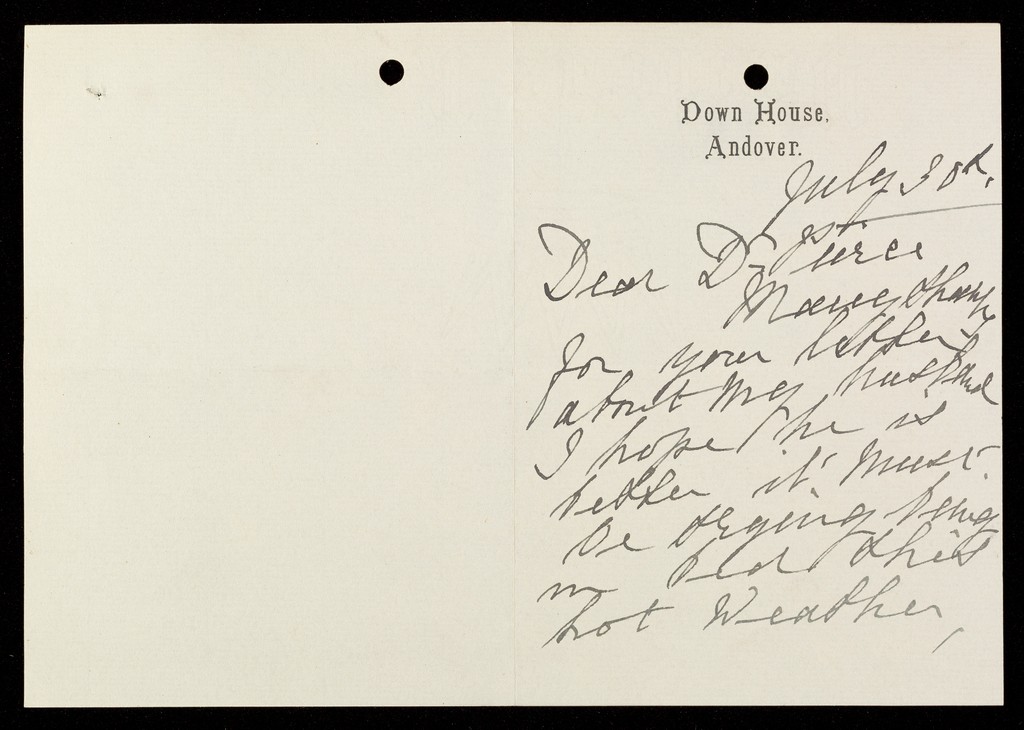 Down House,
Andover.
July 30th.
Dear Dr Pierce
Many thanks
for your letter
about my husband
I hope he is
better it must
be trying being
in bed this
hot weather,